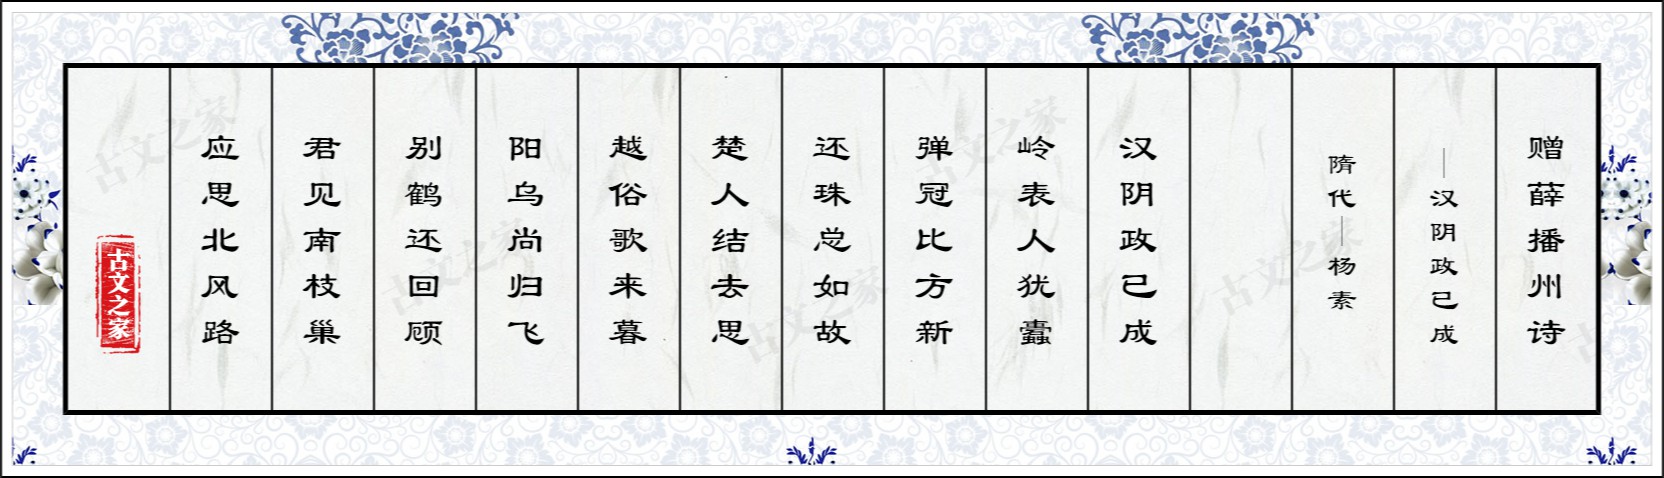 赠薛播州诗
—汉阴政已成
隋代—杨素
汉阴政已成
岭表人犹蠹
弹冠比方新
还珠总如故
楚人结去思
越俗歌来暮
阳乌尚归飞
别鹤还回顾
君见南枝巢
应思北风路
古文之家